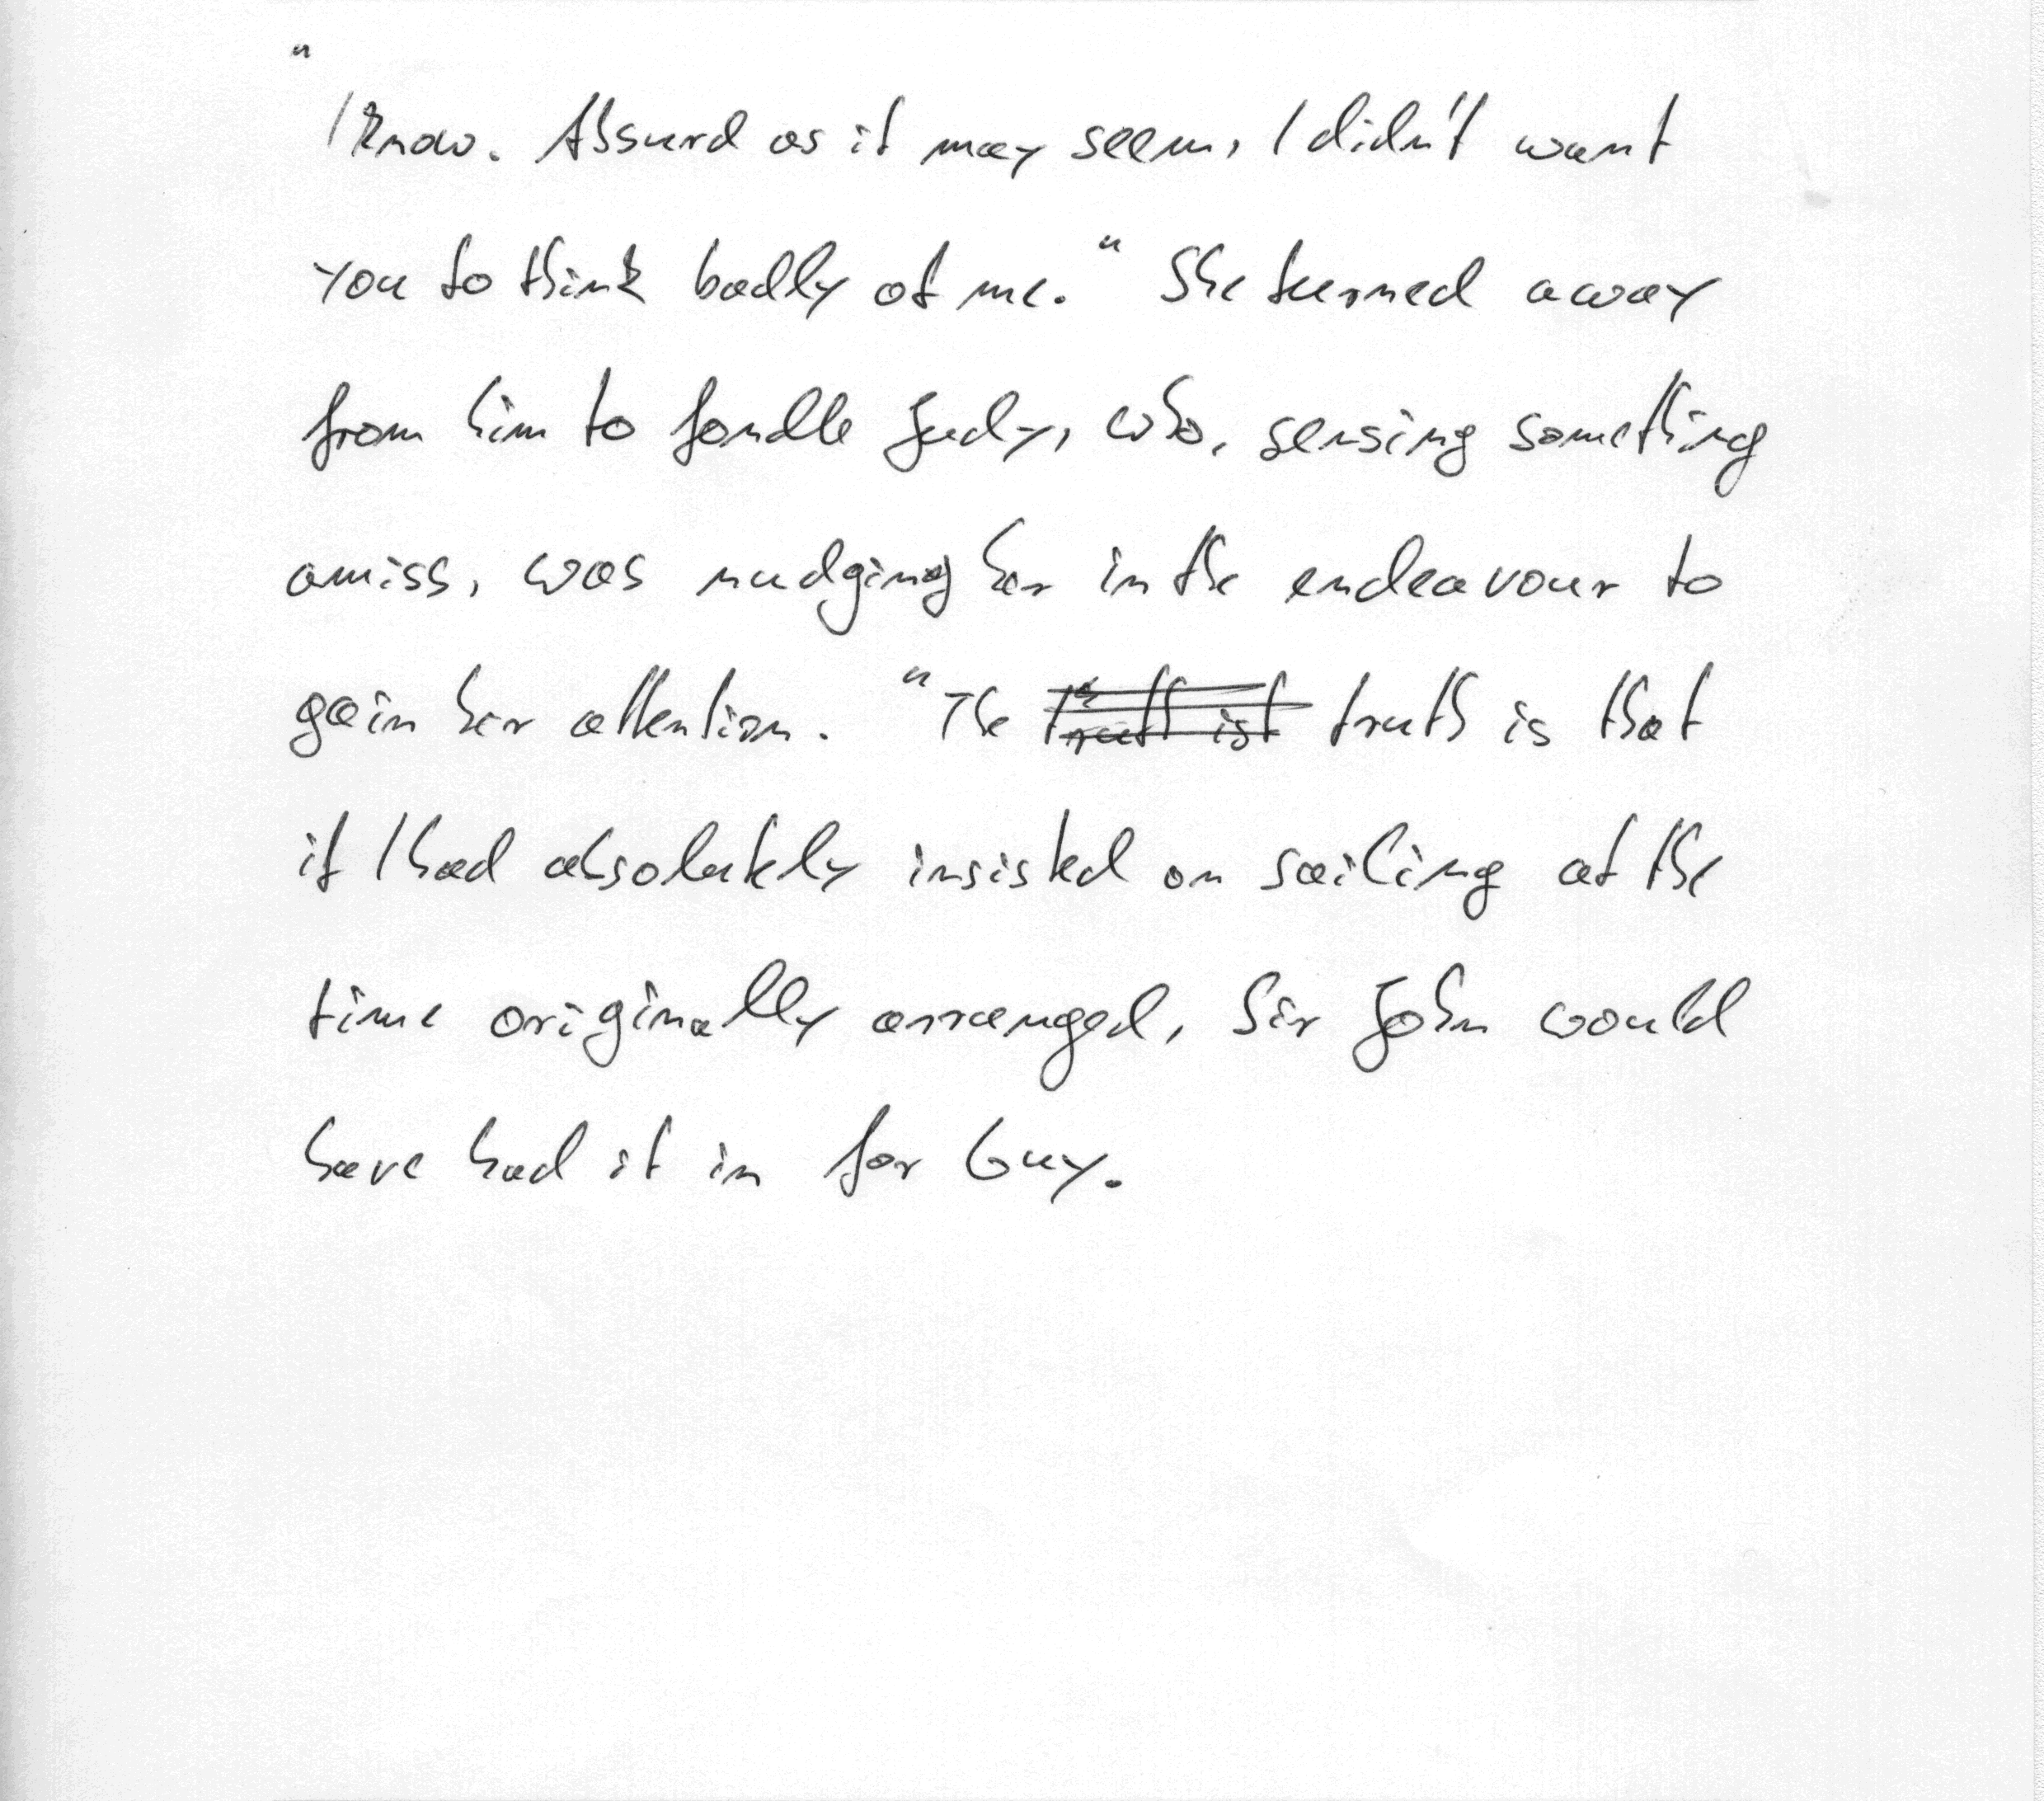 "
I know. Absurd as it may seem, I didn't want
you to think badly of me." She turned away
from him to fondle Judy, who, sensing something
amiss, was nudging her in the endeavour to
gain her attention. "The truth ist truth is that
if I had absolutely insisted on sailing at the
time originally arranged, Sir John would
have had it in for Guy.